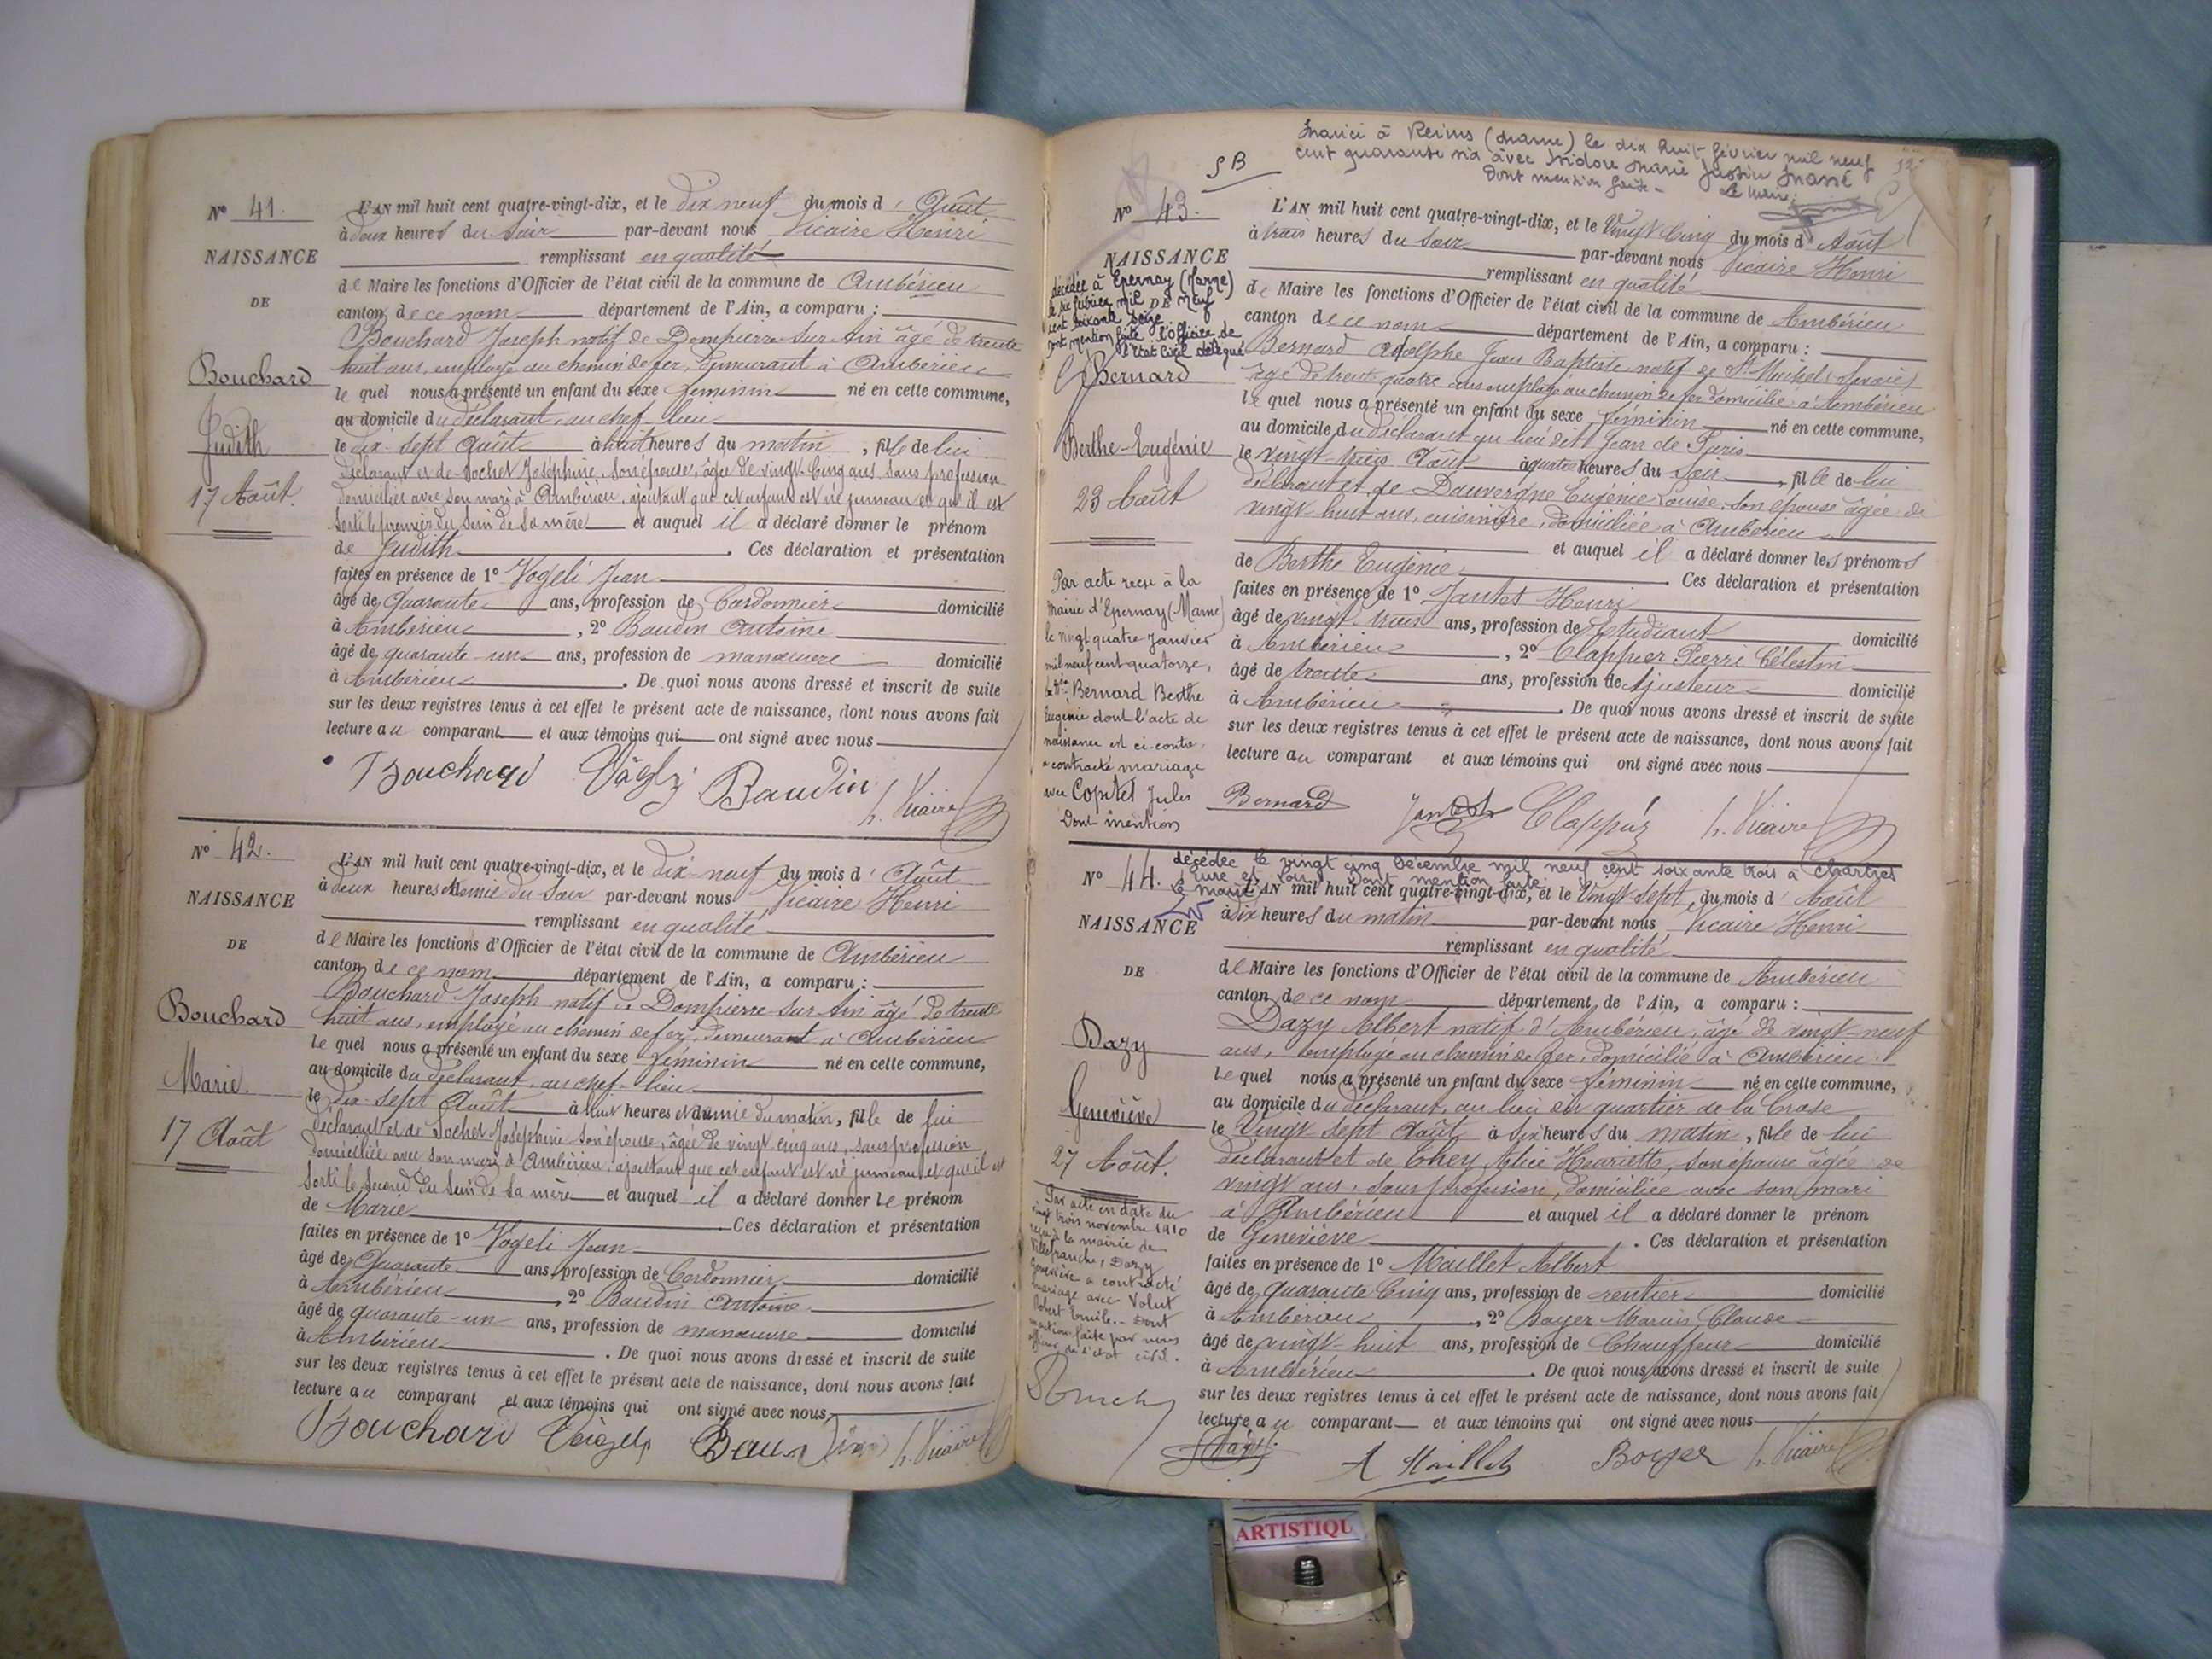 N° 41.
NAISSANCE
DE
Bouchard
Judith
17 Août.
L'AN mil huit cent quatre-vingt-dix, et le dix neuf du mois d' Août
à deux heures du soir par-devant nous Vicaire Henri
remplissant en qualité
de Maire les fonctions d'Officier de l'état civil de la commune de Ambérieu
canton de ce nom département de l'Ain, a comparu :
Bouchard Joseph natif de Dompierre sur Ain âgé de trente
huit ans, employé au chemin de fer, demeurant à Ambérieu
le quel nous a présenté un enfant du sexe féminin né en cette commune,
au domicile du déclarant, au chef-lieu
le dix-sept Août à huit heures du matin, fille de lui
déclarant et de Sochet Joséphine, son épouse, âgée de vingt cinq ans sans profession
domiciliée avec son mari à Ambérieu, ajoutant que cet enfant est né jumeau et qu'il est
sorti le premier du sein de sa mère et auquel il a déclaré donner le prénom
de Judith. Ces déclaration et présentation
faites en présence de 1° Vogeli Jean
âgé de quarante ans, profession de Cordonnier domicilié
à Ambérieu, 2° Baudin Antoine
âgé de quarante-un ans, profession de manœuvre domicilié
à Ambérieu. De quoi nous avons dressé et inscrit de suite
sur les deux registres tenus à cet effet le présent acte de naissance, dont nous avons fait
lecture au comparant et aux témoins qui ont signé avec nous
Bouchard Baudin h. Vicaire
N° 42.
NAISSANCE
DE
Bouchard
Marie.
17 Août
L'AN mil huit cent quatre-vingt-dix, et le dix-neuf du mois d' Août
à deux heures et demie du soir par-devant nous Vicaire Henri
remplissant en qualité
de Maire les fonctions d'Officier de l'état civil de la commune de Ambérieu
canton de ce nom département de l'Ain, a comparu :
Bouchard Joseph natif de Dompierre sur Ain âgé de trente
huit ans, employé au chemin de fer, demeurant à Ambérieu
le quel nous a présenté un enfant du sexe féminin né en cette commune,
au domicile du déclarant, au chef-lieu
le dix-sept Août à huit heures et demie du matin, fille de lui
déclarant et de Sochet Joséphine son épouse, âgée de vingt cinq ans, sans profession
domiciliée avec son mari à Ambérieu, ajoutant que cet enfant est né jumeau et qu'il est
sorti le second du sein de sa mère et auquel il a déclaré donner le prénom
de Marie. Ces déclaration et présentation
faites en présence de 1° Vogeli Jean
âgé de Quarante ans, profession de Cordonnier domicilié
à Ambérieu, 2° Baudin Antoine
âgé de quarante-un ans, profession de manœuvre domicilié
à Ambérieu. De quoi nous avons dressé et inscrit de suite
sur les deux registres tenus à cet effet le présent acte de naissance, dont nous avons fait
lecture au comparant et aux témoins qui ont signé avec nous
Bouchard h. Vicaire
Marié à Reims (Marne) le dix huit février mil neuf
cent quarante six avec Isidore Marie Justin Massé
Dont mention faite - Le Maire,
SB
N° 43.
NAISSANCE
DE
décédée à Epernay (Marne)
le six février mil neuf
cent soixante seize
dont mention faite l'officier de
l'Etat Civil délégué
Bernard
Berthe-Eugénie
23 Août
Par acte reçu à la
mairie d'Epernay (Marne)
le vingt quatre Janvier
mil neuf cent quatorze,
la Dlle Bernard Berthe
Eugénie dont l'acte de
naissance est ci-contre,
a contracté mariage
avec Copitet Jules
Dont mention
L'AN mil huit cent quatre-vingt-dix, et le Vingt Cinq du mois d' Août
à trois heures du soir par-devant nous Vicaire Henri
remplissant en qualité
de Maire les fonctions d'Officier de l'état civil de la commune de Ambérieu
canton de ce nom département de l'Ain, a comparu :
Bernard Adolphe Jean Baptiste natif de St Michel (Savoie)
âgé de trente quatre ans employé au chemin de fer domicilié à Ambérieu
le quel nous a présenté un enfant du sexe féminin né en cette commune,
au domicile du déclarant au lieu dit Jean de Paris
le vingt-trois Août à quatre heures du soir, fille de lui
déclarant et de Dauvergne Eugénie Louise, son épouse âgée de
vingt-huit ans, cuisinière, domiciliée à Ambérieu
et auquel il a déclaré donner les prénoms
de Berthe Eugénie. Ces déclaration et présentation
faites en présence de 1° Jantet Henri
âgé de vingt-trois ans, profession de Etudiant domicilié
à Ambérieu, 2° Clappier Pierre Célestin
âgé de trente ans, profession de Ajusteur domicilié
à Ambérieu. De quoi nous avons dressé et inscrit de suite
sur les deux registres tenus à cet effet le présent acte de naissance, dont nous avons fait
lecture au comparant et aux témoins qui ont signé avec nous
Bernard Jantet Clappier h. Vicaire
décédée le vingt cinq décembre mil neuf cent soixante trois à Chartres
Eure et Loir. Dont mention faite.
Le maire
N° 44.
NAISSANCE
DE
Dazy
Geneviève
27 Août.
Par acte en date du
vingt trois novembre 1910
reçu à la mairie de
Villefranche, Dazy
Geneviève a contracté
mariage avec Volut
Robert Emile. - Dont
mention faite par nous
officier de l'état civil.
L'AN mil huit cent quatre-vingt-dix, et le Vingt-Sept du mois d' Août
à dix heures du matin par-devant nous Vicaire Henri
remplissant en qualité
de Maire les fonctions d'Officier de l'état civil de la commune de Ambérieu
canton de ce nom département de l'Ain, a comparu :
Dazy Albert natif d'Ambérieu, âgé de vingt-neuf
ans, employé au chemin de fer, domicilié à Ambérieu.
le quel nous a présenté un enfant du sexe féminin né en cette commune,
au domicile du déclarant, au lieu dit quartier de la Croze
le Vingt Sept Août à six heures du matin, fille de lui
déclarant et de Alice Henriette, son épouse âgée de
vingt ans, sans profession, domiciliée avec son mari
à Ambérieu et auquel il a déclaré donner le prénom
de Geneviève. Ces déclaration et présentation
faites en présence de 1° Maillet Albert
âgé de quarante Cinq ans, profession de rentier domicilié
à Ambérieu, 2° Boyer Marius Claude
âgé de vingt-huit ans, profession de Chauffeur domicilié
à Ambérieu. De quoi nous avons dressé et inscrit de suite
sur les deux registres tenus à cet effet le présent acte de naissance, dont nous avons fait
lecture au comparant et aux témoins qui ont signé avec nous
Dazy A Maillet Boyer h. Vicaire
ARTISTIQU